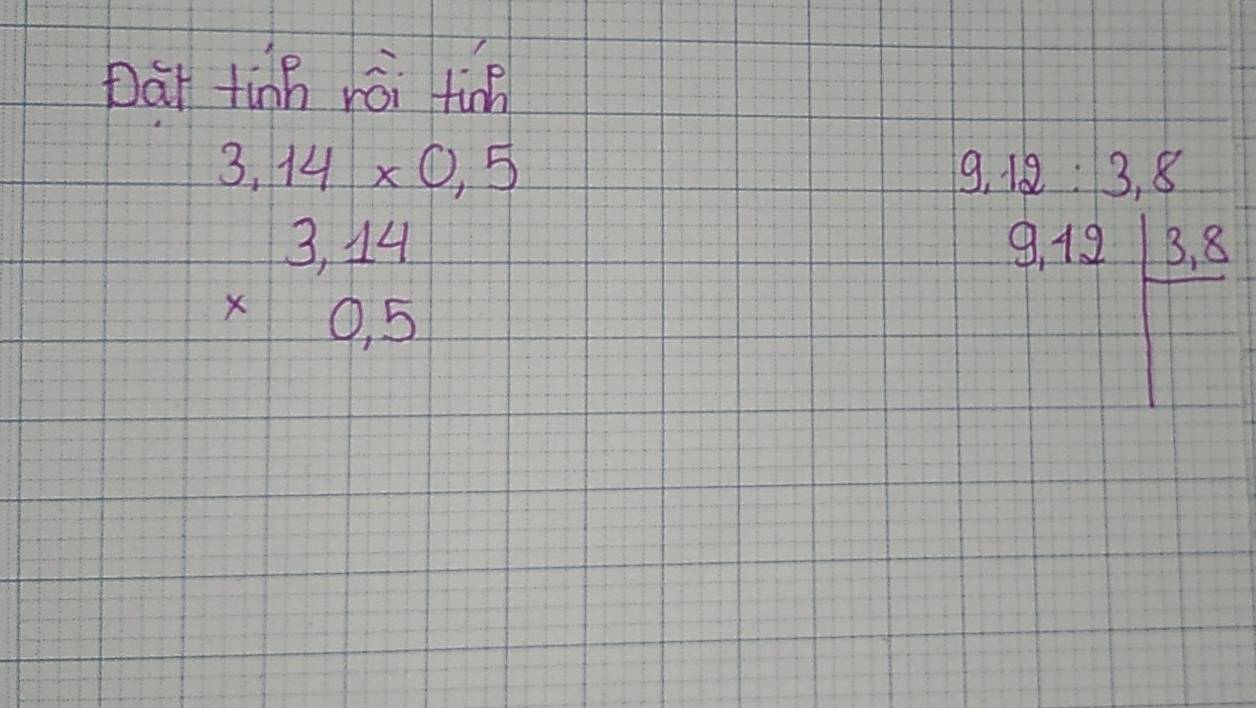 Đặt tính rồi tính
3,14 x 0,5
3,14
x 0,5
9,12 : 3,8
9,12 3,8